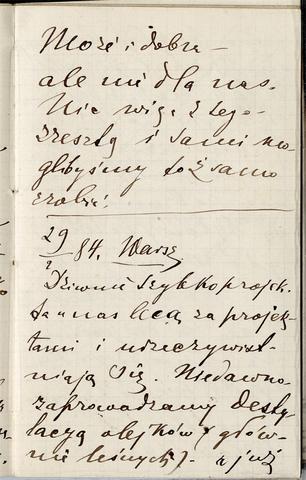 Może i dobre –
ale nie dla nas.
Nic więc z tego
zresztą i sami mo-
glibyśmy to samo
zrobić!
29
I 84. Warsz
Dziwnie szybko projek.
ta u nas lecą za projek-
tami i urzeczywist-
niają się. Niedawno
zaprowadzamy desty
lacyą olejków (głów-
nie leśnych). a już